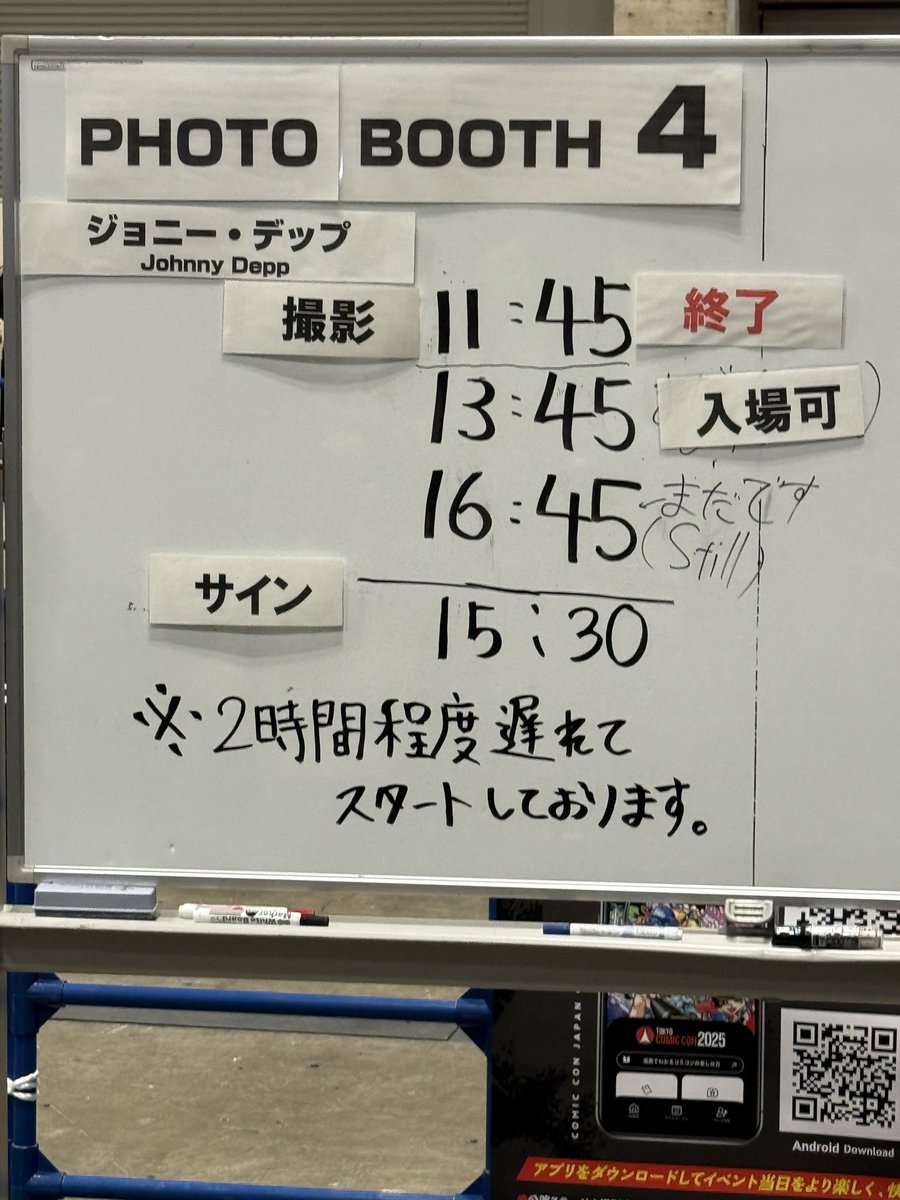 PHOTO BOOTH 4
ジョニー・デップ
Johnny Depp
撮影 11:45 終了
13:45 入場可
16:45 ←まだです
(Still)
サイン
15:30
※2時間程度遅れて
スタートしております。
COMIC CON JAPAN
TOKYO
COMIC CON 2025
Android Download
アプリをダウンロードしてイベント当日をより楽しく、